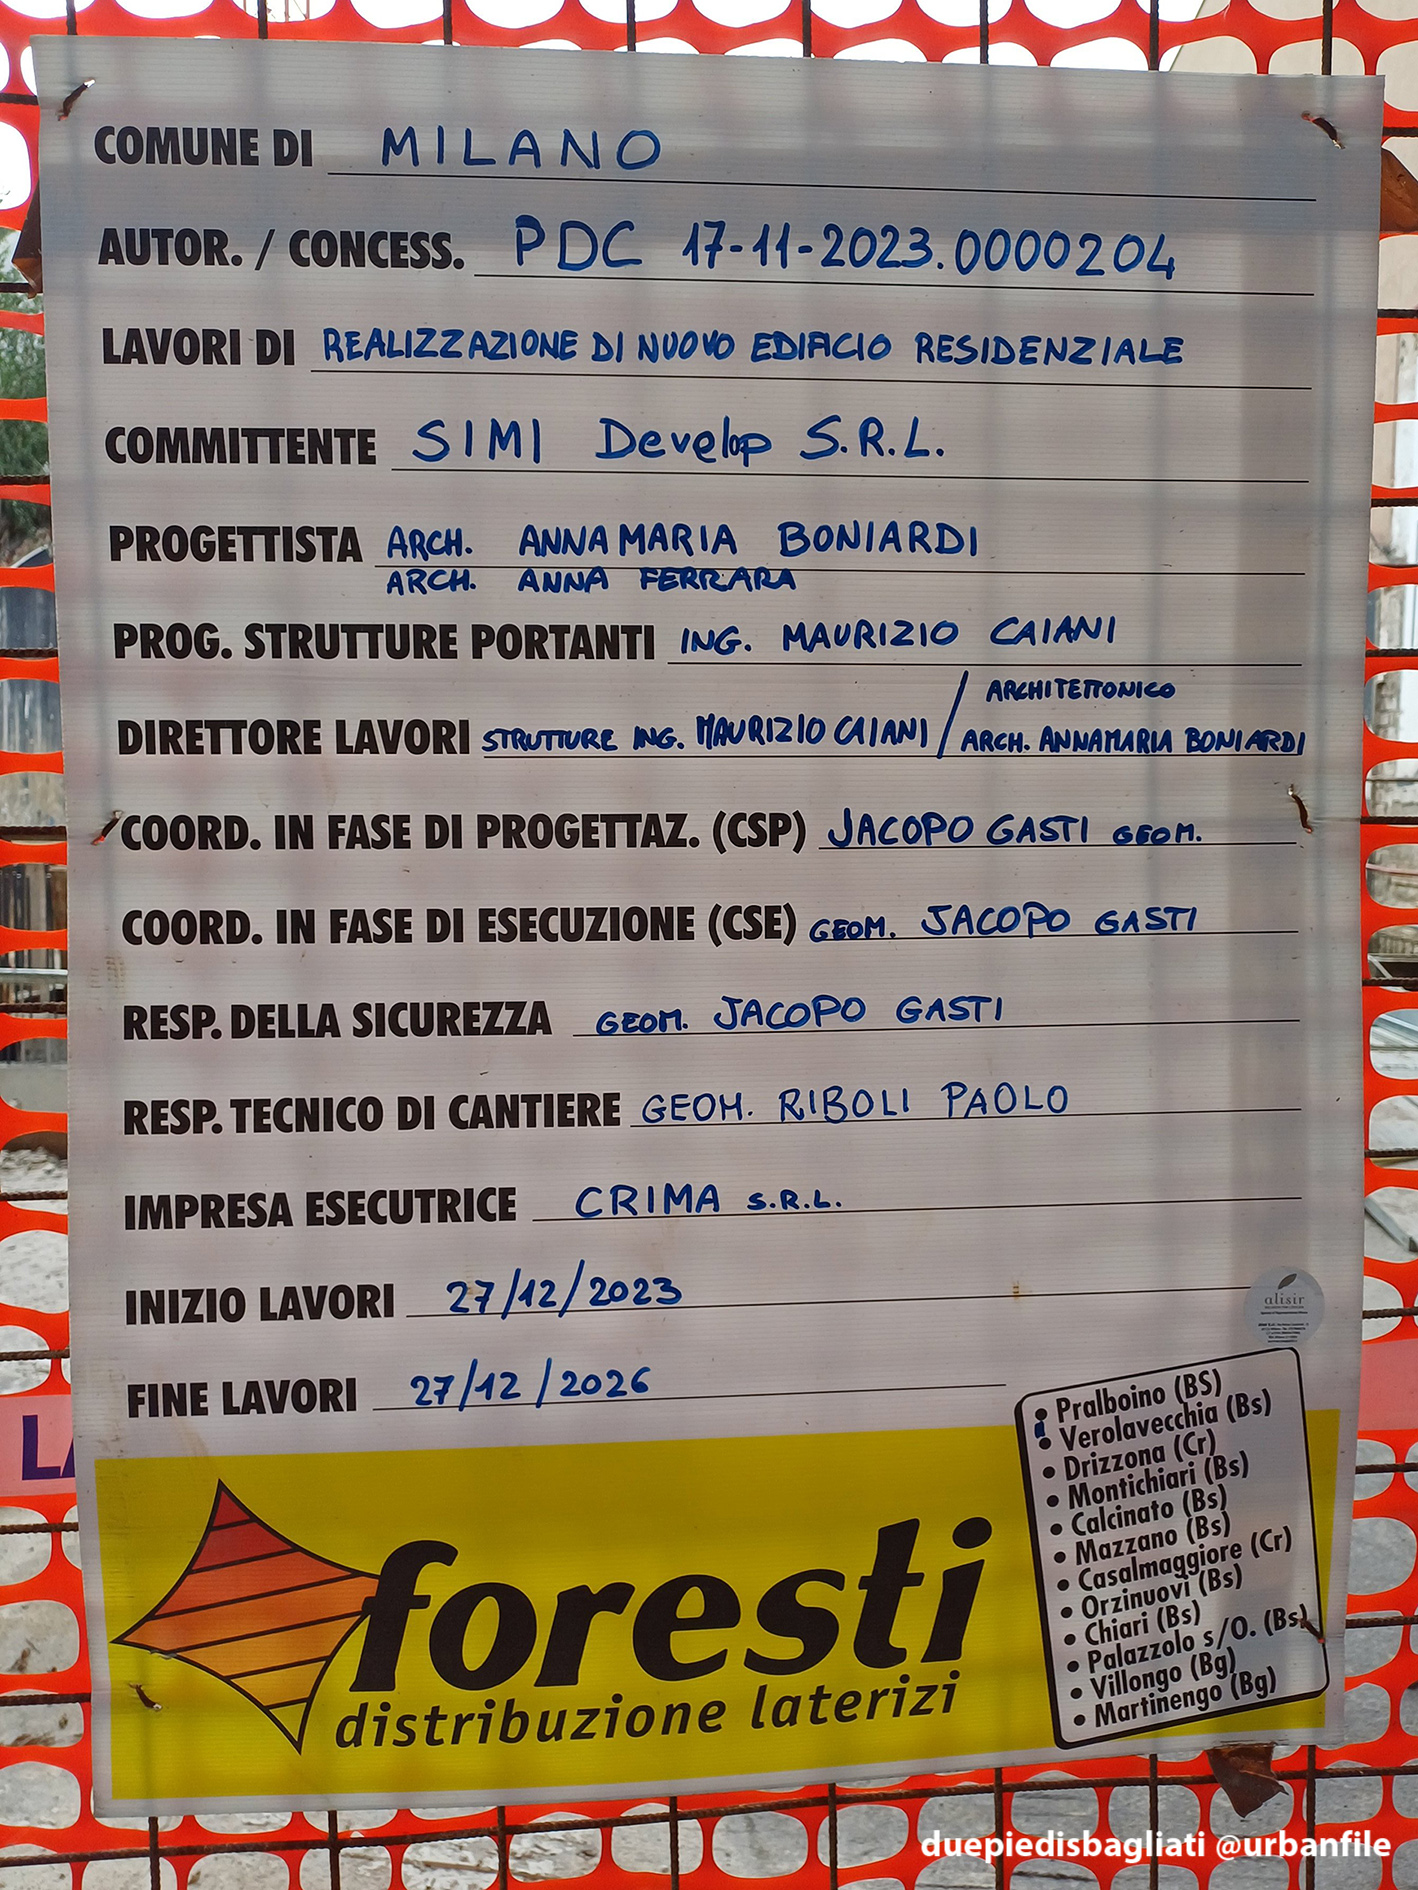 COMUNE DI MILANO
AUTOR. / CONCESS. PDC 17-11-2023.0000204
LAVORI DI REALIZZAZIONE DI NUOVO EDIFICIO RESIDENZIALE
COMMITTENTE SIMI Develop S.R.L.
PROGETTISTA ARCH. ANNAMARIA BONIARDI
ARCH. ANNA FERRARA
PROG. STRUTTURE PORTANTI ING. MAURIZIO CAIANI
ARCHITETTONICO
DIRETTORE LAVORI STRUTTURE ING. MAURIZIO CAIANI / ARCH. ANNAMARIA BONIARDI
COORD. IN FASE DI PROGETTAZ. (CSP) JACOPO GASTI GEOM.
COORD. IN FASE DI ESECUZIONE (CSE) GEOM. JACOPO GASTI
RESP. DELLA SICUREZZA GEOM. JACOPO GASTI
RESP. TECNICO DI CANTIERE GEOM. RIBOLI PAOLO
IMPRESA ESECUTRICE CRIMA S.R.L.
INIZIO LAVORI 27/12/2023
FINE LAVORI 27/12/2026
alisir
• Pralboino (BS)
• Verolavecchia (Bs)
• Drizzona (Cr)
• Montichiari (Bs)
• Calcinato (Bs)
• Mazzano (Bs)
• Casalmaggiore (Cr)
• Orzinuovi (Bs)
• Chiari (Bs)
• Palazzolo s/O. (Bs)
• Villongo (Bg)
• Martinengo (Bg)
foresti
distribuzione laterizi
LA
duepiedisbagliati @urbanfile